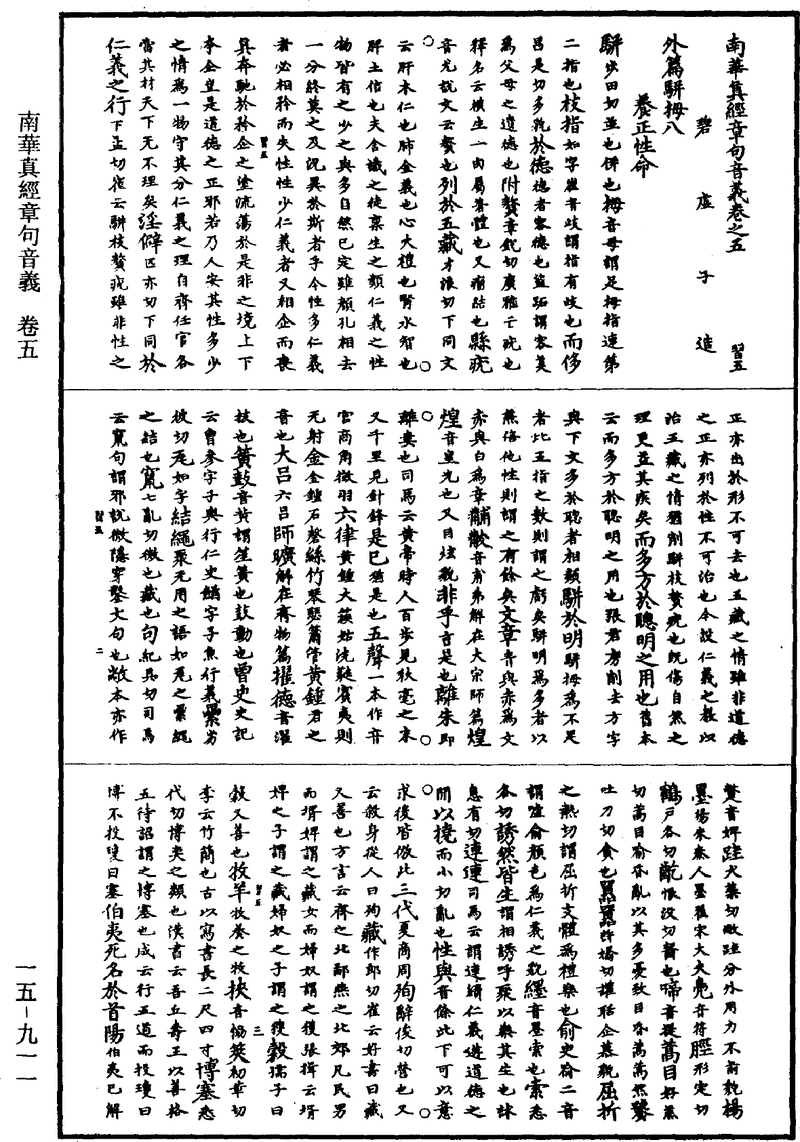 南華真經章句音義卷之五　習五
碧虛子造
外篇駢拇八
養正性命
駢步田切並也併也拇音母謂足拇指連第
二指也枝指如字崔音歧謂指有歧也而侈
呂是切多皃於德德者容德也並跖謂容莫
為父母之遺德也附贅章銳切廣雅云疣也
釋名云橫生一肉屬著體也又瘤結也縣疣
音尤說文云贅也列於五藏才浪切下同文
云肝木仁也肺金義也心火禮也腎水智也
脾土信也夫含識之徒稟生之類仁義之性
物皆有之少之與多自然已定雖顏孔相去
一分終莫之及況異於斯者乎今性多仁義
者必相矜而失性性少仁義者又相企而喪
箕奔馳於矜企之塗流蕩於是非之境上下
李全皇是道德之正邪若乃人安其性多少
之情為一物守其分仁義之理自齊任官各
當其材天下无不理矣淫僻匹亦切下同於
仁義之行下孟切崔云駢枝贅疣雖非性之
正亦出於形不可去也五藏之情雖非道德
之正亦列於性不可治也今設仁義之教以
治五藏之情猶削駢枝贅疣也既傷自然之
理更益其疾矣而多方於聰明之用也舊本
云而多方於聰明之用也張君房削去方字
與下文多於聰者相類駢於明駢拇為不足
者比五指之數則謂之虧矣駢明為多者以
無倍他性則謂之有餘矣文章青與赤為文
赤與白為章黼黻音甫弗解在大宗師篇煌
煌音皇光也又目炫皃非乎言是也離朱即
離婁也司馬云黃帝時人百步見秋毫之末
又千里見針鋒是已猶是也五聲一本作音
宮商角徵羽六律黃鍾大簇姑洗蕤賓夷則
无射金金鍾石磬絲竹琴瑟簫管黃鍾君之
音也大呂六呂師曠解在齊物篇擢德音濯
拔也簧鼓音黃謂笙簧也鼓動也曾史史記
云曾參字子輿行仁史鰌字子魚行義纍劣
彼切瓦如字結繩聚无用之語如瓦之纍繩
之結也竄七亂切微也藏也句紀具切司馬
云竄句謂邪說微隱穿鑿文句也敝本亦作
蹩音婢跬犬蘂切敝跬分外用力不前皃楊
墨楊朱秦人墨翟宋大夫鳧音符脛形定切
鶴戶各切齕恨沒切齧也啼音提蒿目好羔
切蒿目喻昏亂以其多憂致目昏蒿蒿然饕
吐刀切貪也囂囂許嬌切讙聒企慕皃屈折
之熱切謂屈折支體為禮樂也呴俞史俞二音
謂嘘俞顏色為仁義之皃纆音墨索也索悉
各切誘然皆生謂相誘呼聚以樂其生也訹
息有切連連司馬云謂連續仁義遊道德之
間以撓而小切亂也性與音餘此下可以意
求後皆倣此三代夏商周殉辭俊切營也又
云殺身從人曰殉臧作郎切崔云好書曰臧
又善也方言云齊之北鄙燕之北郊凡民男
而壻婢謂之臧女而婦奴謂之獲張揖云壻
婢之子謂之臧婦奴之子謂之獲穀孺子曰
穀又善也牧羊牧養之牧挾音協筴初革切
李云竹簡也古以寫書長二尺四寸博塞悉
代切博奕之類也漢書云吾丘壽王以善格
五待詔謂之博塞也成云行五道而投瓊曰
博不投瓊曰塞伯夷死名於首陽伯夷已解
習五
習五
二
習五
三
南華真經章句音義　卷五
一五－九一一